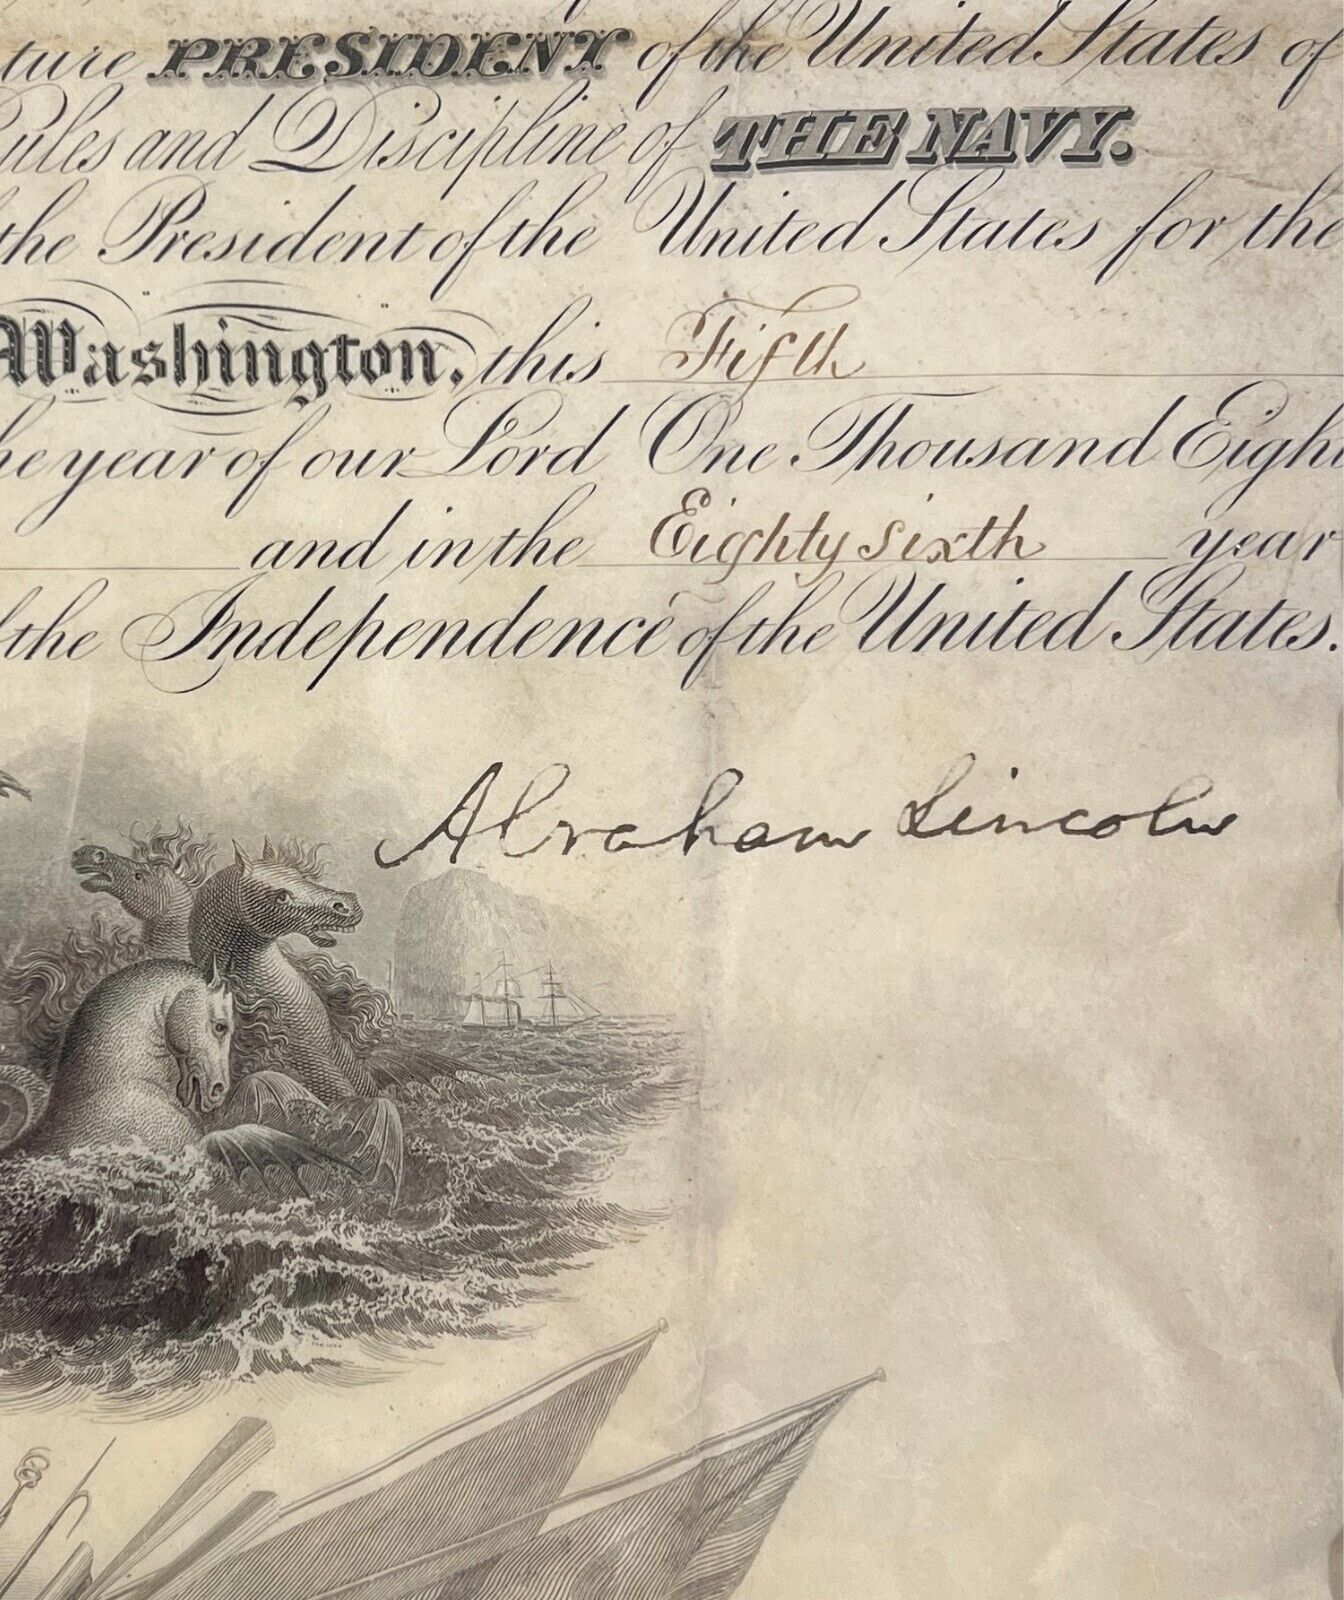 ture PRESIDENT of the United States of
Rules and Discipline of THE NAVY.
the President of the United States for the
Washington, this Fifth
he year of our Lord One Thousand Eight
and in the Eighty sixth year
the Independence of the United States.
Abraham Lincoln